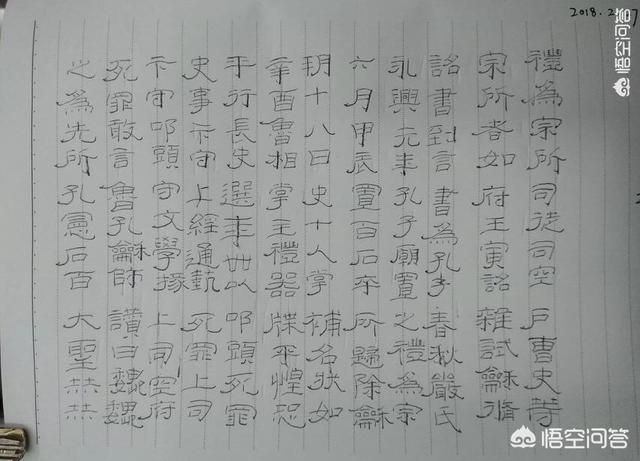 2018.2.
禮為宗所司徒司空戶曹史
宗所者如府王寅詔雜試龢脩
詔書到言書為孔子春秋嚴氏
永興元年孔子廟置之禮為宗
六月甲辰置百石卒所歸除龢
十八日史十人掌補名狀如
辛酉魯相掌主禮器牒平惶恐
平行長史選年卌以叩頭死罪
史事卞守上經通藝死罪上司
卞守叩頭守文學掾上司空府
死罪敢言魯孔龢師讚曰巍巍
之為先所孔憲石百大聖赫赫
悟空问答
悟空问答